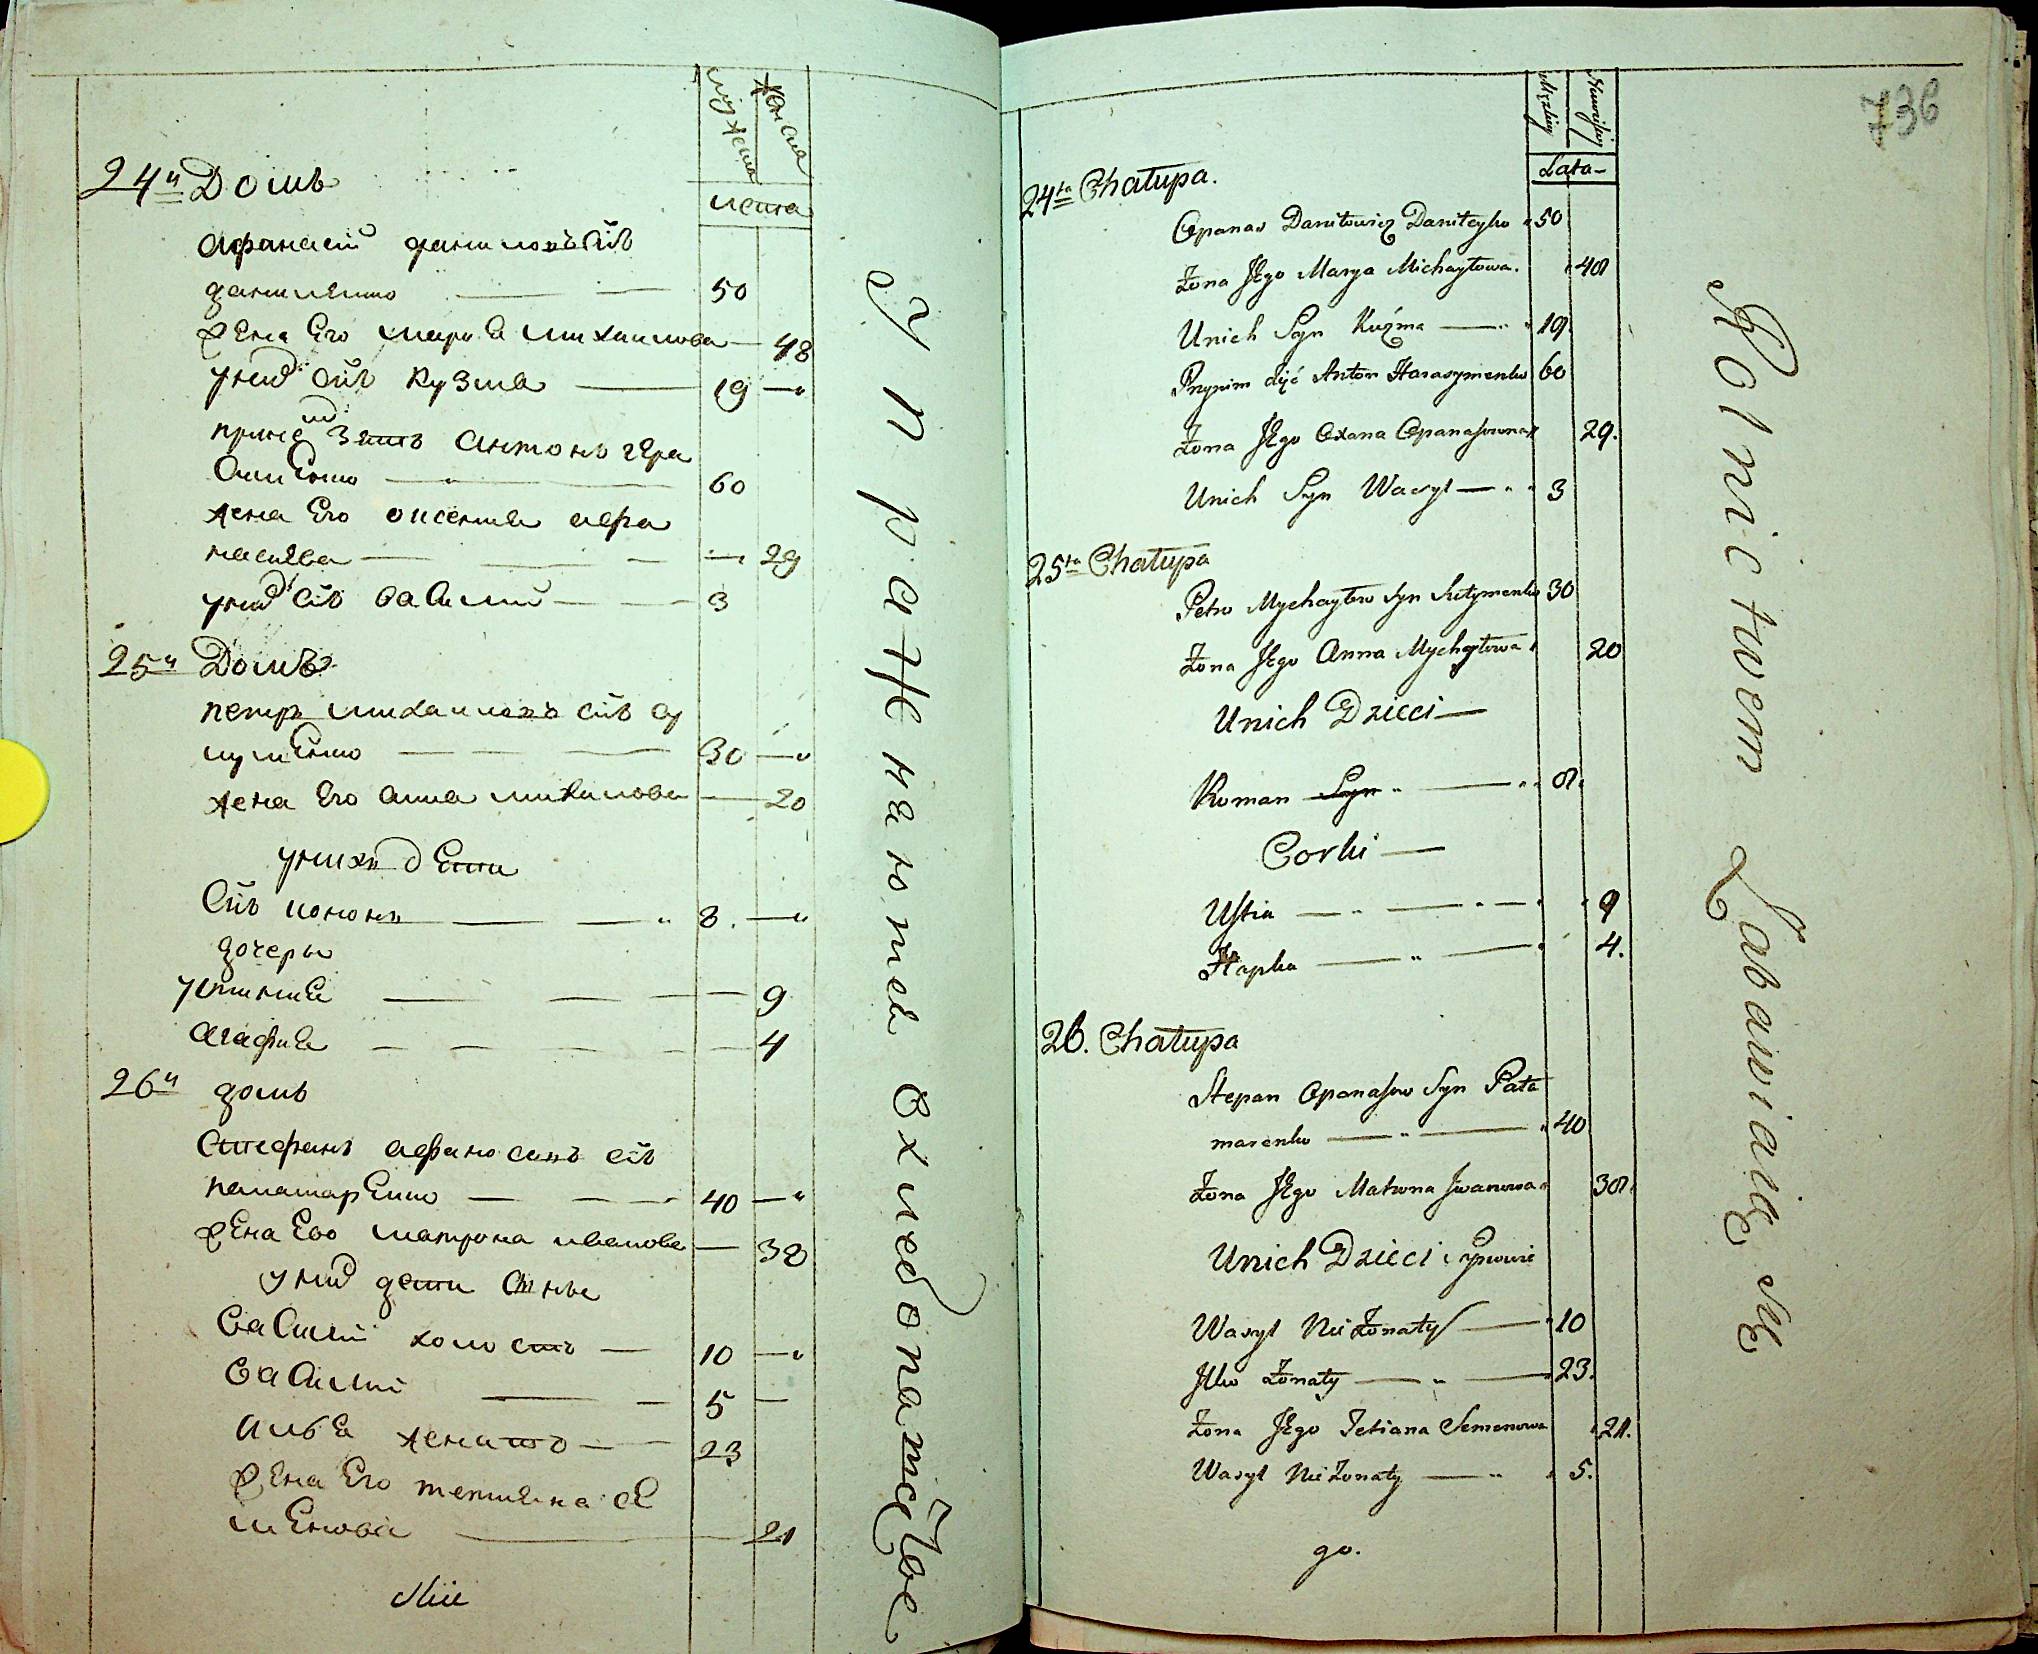 мужеска
женска
лета
24й Домъ
афанасий даниловъ сйъ
даниленко 50
жена Его марья михаилова 48
у них сйъ кузма 19
принетъ зять антонъ гера
сименко 60
жена Его оксения афа
насиева 29
у них сйъ василий 3
25й Домъ
петръ михаиловъ сйъ су
лименко 30
жена Его анна михаилова 20
у нихъ дети
Сйъ 8
дочеры
устиния 9
агафия 4
26й домъ
Стефанъ афанасиевъ сйъ
паламаренко 40
жена Ево матрона иванова 38
у них дети сйны
василий холостъ 10
василий 5
илья женатъ 23
жена Его тетияна се
менова 21
упражнаются в хлебопашестве
736
Męzkiey
Niewiesciey
Lata
24ta Chałupa.
Opanas Daniłowicz Daniłeyko 50
Żona Jego Marya Michayłowa. 48
Unich Syn Kuźma 19
Prynim zięć Anton Harasymenko 60
Żona Jego Oxana Opanasowna 29.
Unich Syn Wasyl 3
25ta Chałupa
Petro Mychayłow Syn Sułymenko 30
Żona Jego Anna Mychayłowa 20
Unich Dzieci
Roman Syn 8.
Corki
Ustia 9
Hapka 4.
26. Chałupa
Stepan Opanasow Syn Pała
marenko 40
Żona Jego Matrona Jwanowa 38.
Unich Dzieci Synowie
Wasyl Nieżonaty 10
Jlko Żonaty 23.
Żona Jego Tetiana Semenowa 21.
Wasyl Nieżonaty 5.
go.
Rolnictwem Zabawiaią Się